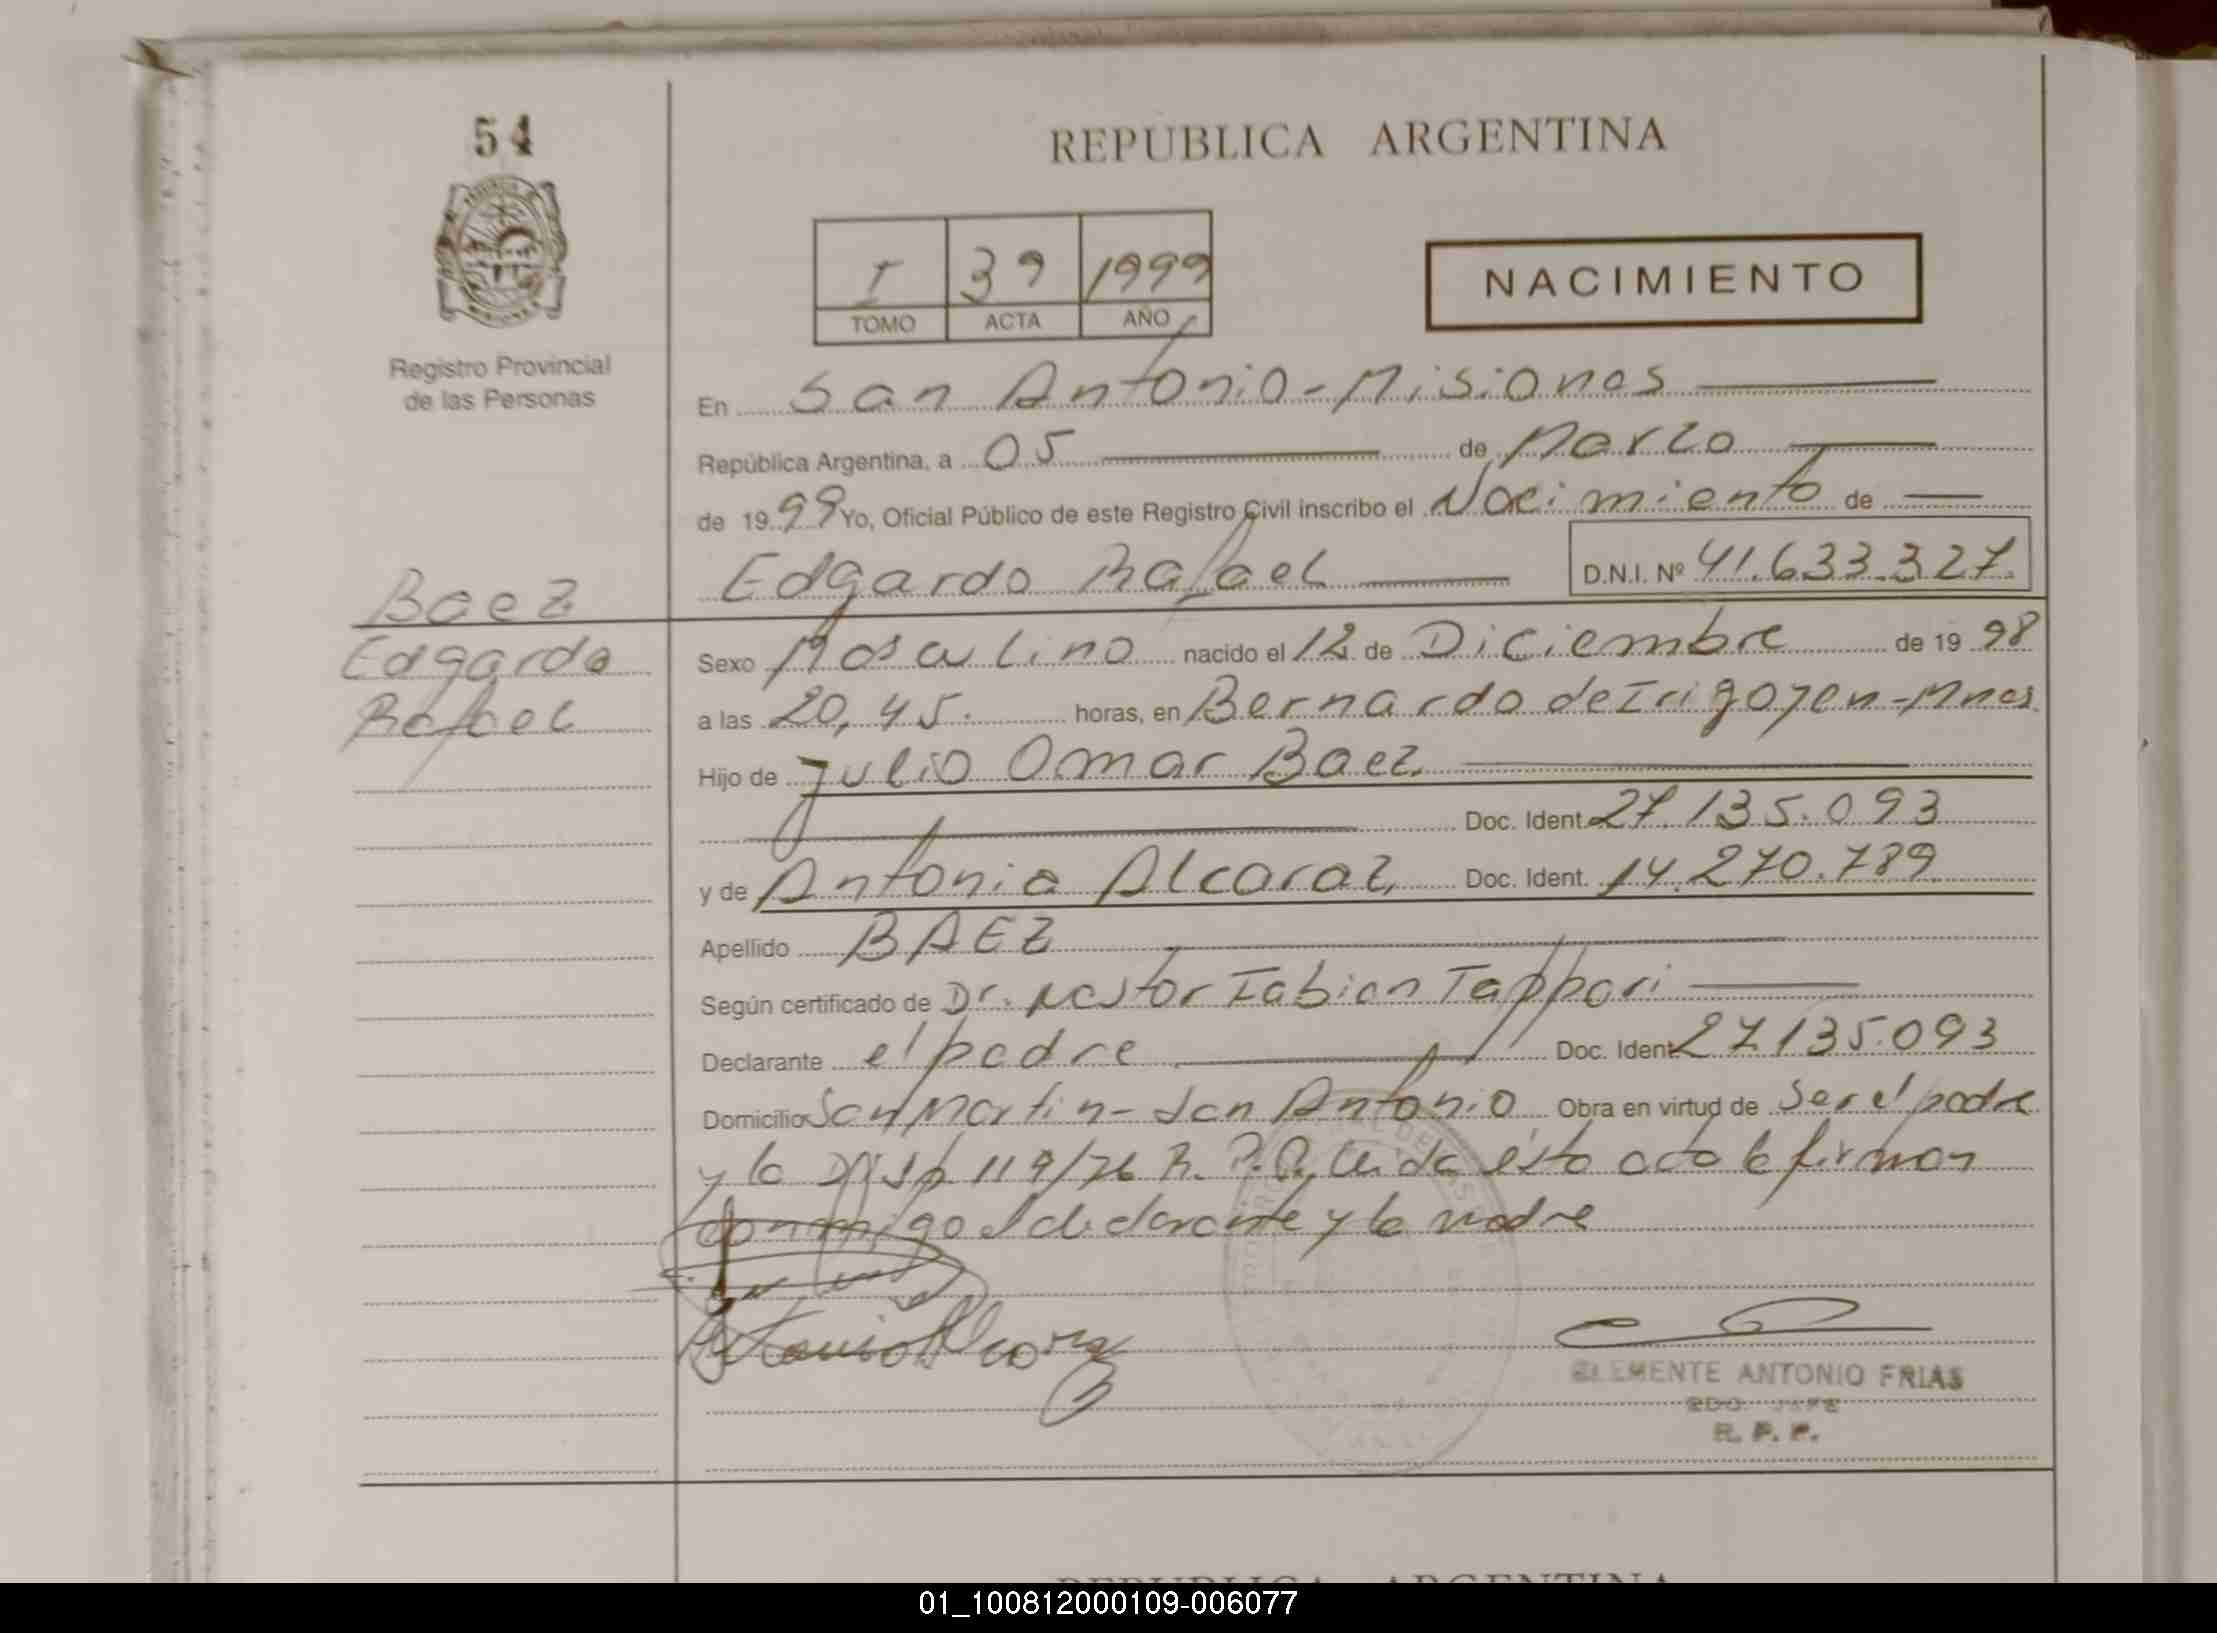 54
REPUBLICA ARGENTINA
I 39 1999
TOMO ACTA AÑO
NACIMIENTO
Registro Provincial
de las Personas
En San Antonio - Misiones
República Argentina, a 05 de Marzo
de 1999 Yo, Oficial Público de este Registro Civil inscribo el Nacimiento de
Edgardo Rafael D.N.I. Nº 41.633.327.
Baez
Edgardo
Rafael
Sexo Masculino nacido el 12 de Diciembre de 1998
a las 20,45. horas, en Bernardo de Irigoyen - Mnes
Hijo de Julio Omar Baez
Doc. Ident. 27.135.093
y de Antonia Alcaraz Doc. Ident. 14.270.789
Apellido BAEZ
Según certificado de Dr. Nestor Fabian Tappari
Declarante el padre Doc. Ident. 27.135.093
Domicilio San Martin - San Antonio Obra en virtud de Ser el padre
y la Disp. 119/76 R.P.P. Leida ésta acta la firman
conmigo el declarante y la madre
Antonia Alcaraz
CLEMENTE ANTONIO FRIAS
2DO. JEFE
R. P. P.
REPUBLICA ARGENTINA
01_100812000109-006077